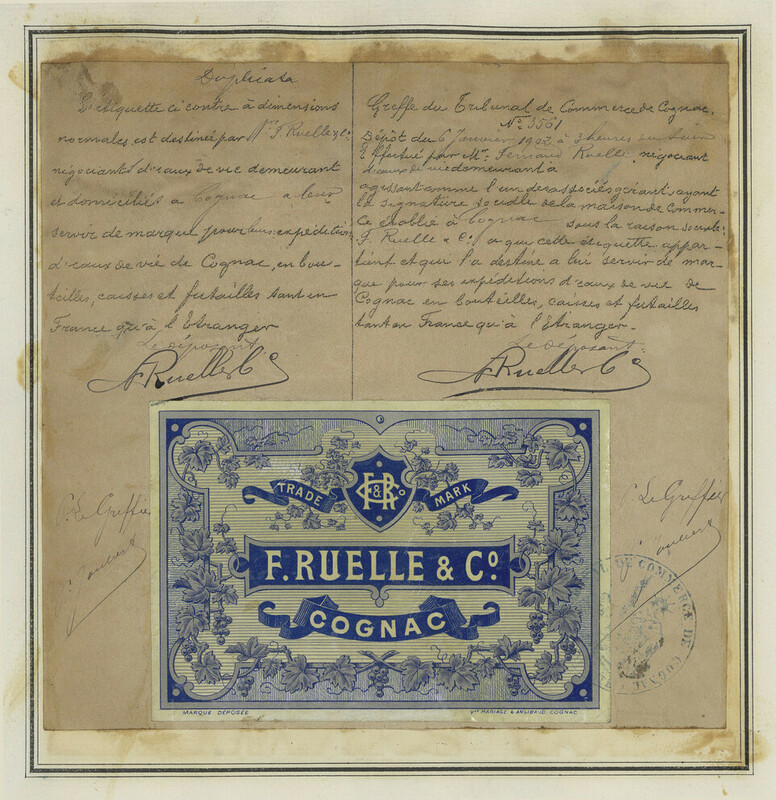 Duplicata
L'étiquette ci contre à dimensions
normales, est destinée par Mrs F. Ruelle & Co
négociants d'eaux de vie demeurant
et domiciliés à Cognac a leur
servir de marque pour leurs expéditions
d'eaux de vie de Cognac, en bou-
teilles, caisses et futailles tant en
France qu'à l'Etranger
Le Déposant
F Ruelle & Co
P. Le Greffier
Greffe du Tribunal de Commerce de Cognac.
No 3561
Dépôt du 6 Janvier 1902 à 3 heures du soir
Effectué par Mr. Fernand Ruelle, négociant
d'eaux de vie demeurant à
agissant comme l'un des associés gérant, ayant
la signature sociale de la maison de Commer-
ce établie à Cognac sous la raison sociale
F. Ruelle & Co. a qui cette étiquette appar-
tient et qui l'a destine a lui servir de mar-
que pour ses expéditions d'eaux de vie de
Cognac en bouteilles, caisses et futailles
tant en France qu'à l'Etranger-
Le Déposant.
F Ruelle & Co
P. Le Greffier
TRADE F&RCo MARK
F. RUELLE & Co.
COGNAC
MARQUE DÉPOSÉE
Vve MARIAGE & ANLIBAUD, COGNAC
DE COMMERCE DE COGNAC